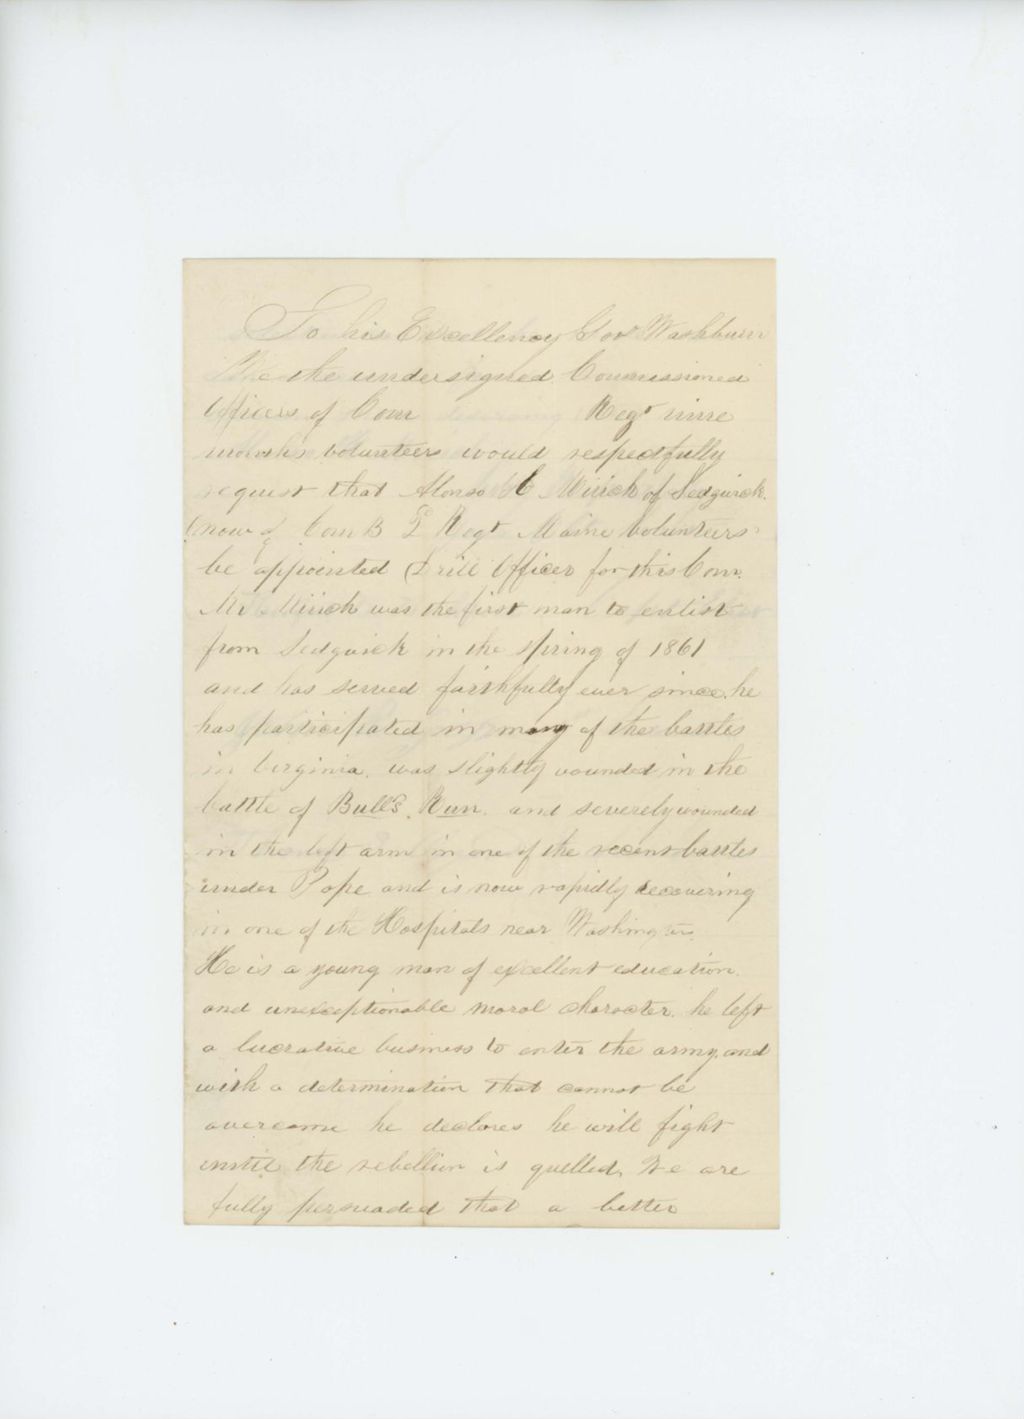 To his Excellency Gov Washburn
We the undersigned Commissioned
Officers of Com Regt nine
months volunteers would respectfully
request that Alonso Minch of Sedgwick
(now of Com B Regt Maine Volunteers
be appointed Drill Officer for this Com.
Mr Minch was the first man to enlist
from Sedgwick in the spring of 1861
and has served faithfully ever since. he
has participated in many of the battles
in Virginia. was slightly wounded in the
battle of Bull's Run. and severely wounded
in the left arm in one of the recent battles
under Pope and is now rapidly recovering
in one of the Hospitals near Washington.
He is a young man of excellent education.
and unexceptionable moral character. he left
a lucrative business to enter the army. and
with a determination that cannot be
overcome he declares he will fight
until the rebellion is quelled, We are
fully persuaded that a better